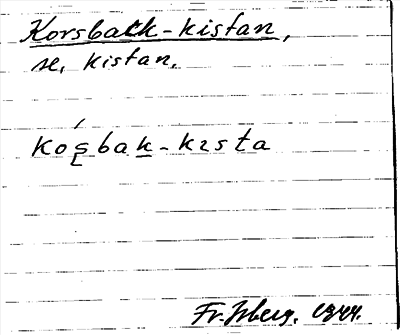 Korsback-kistan,
se, kistan.
koʂ́bak-kɪsta
Fr. Isberg. 1944.